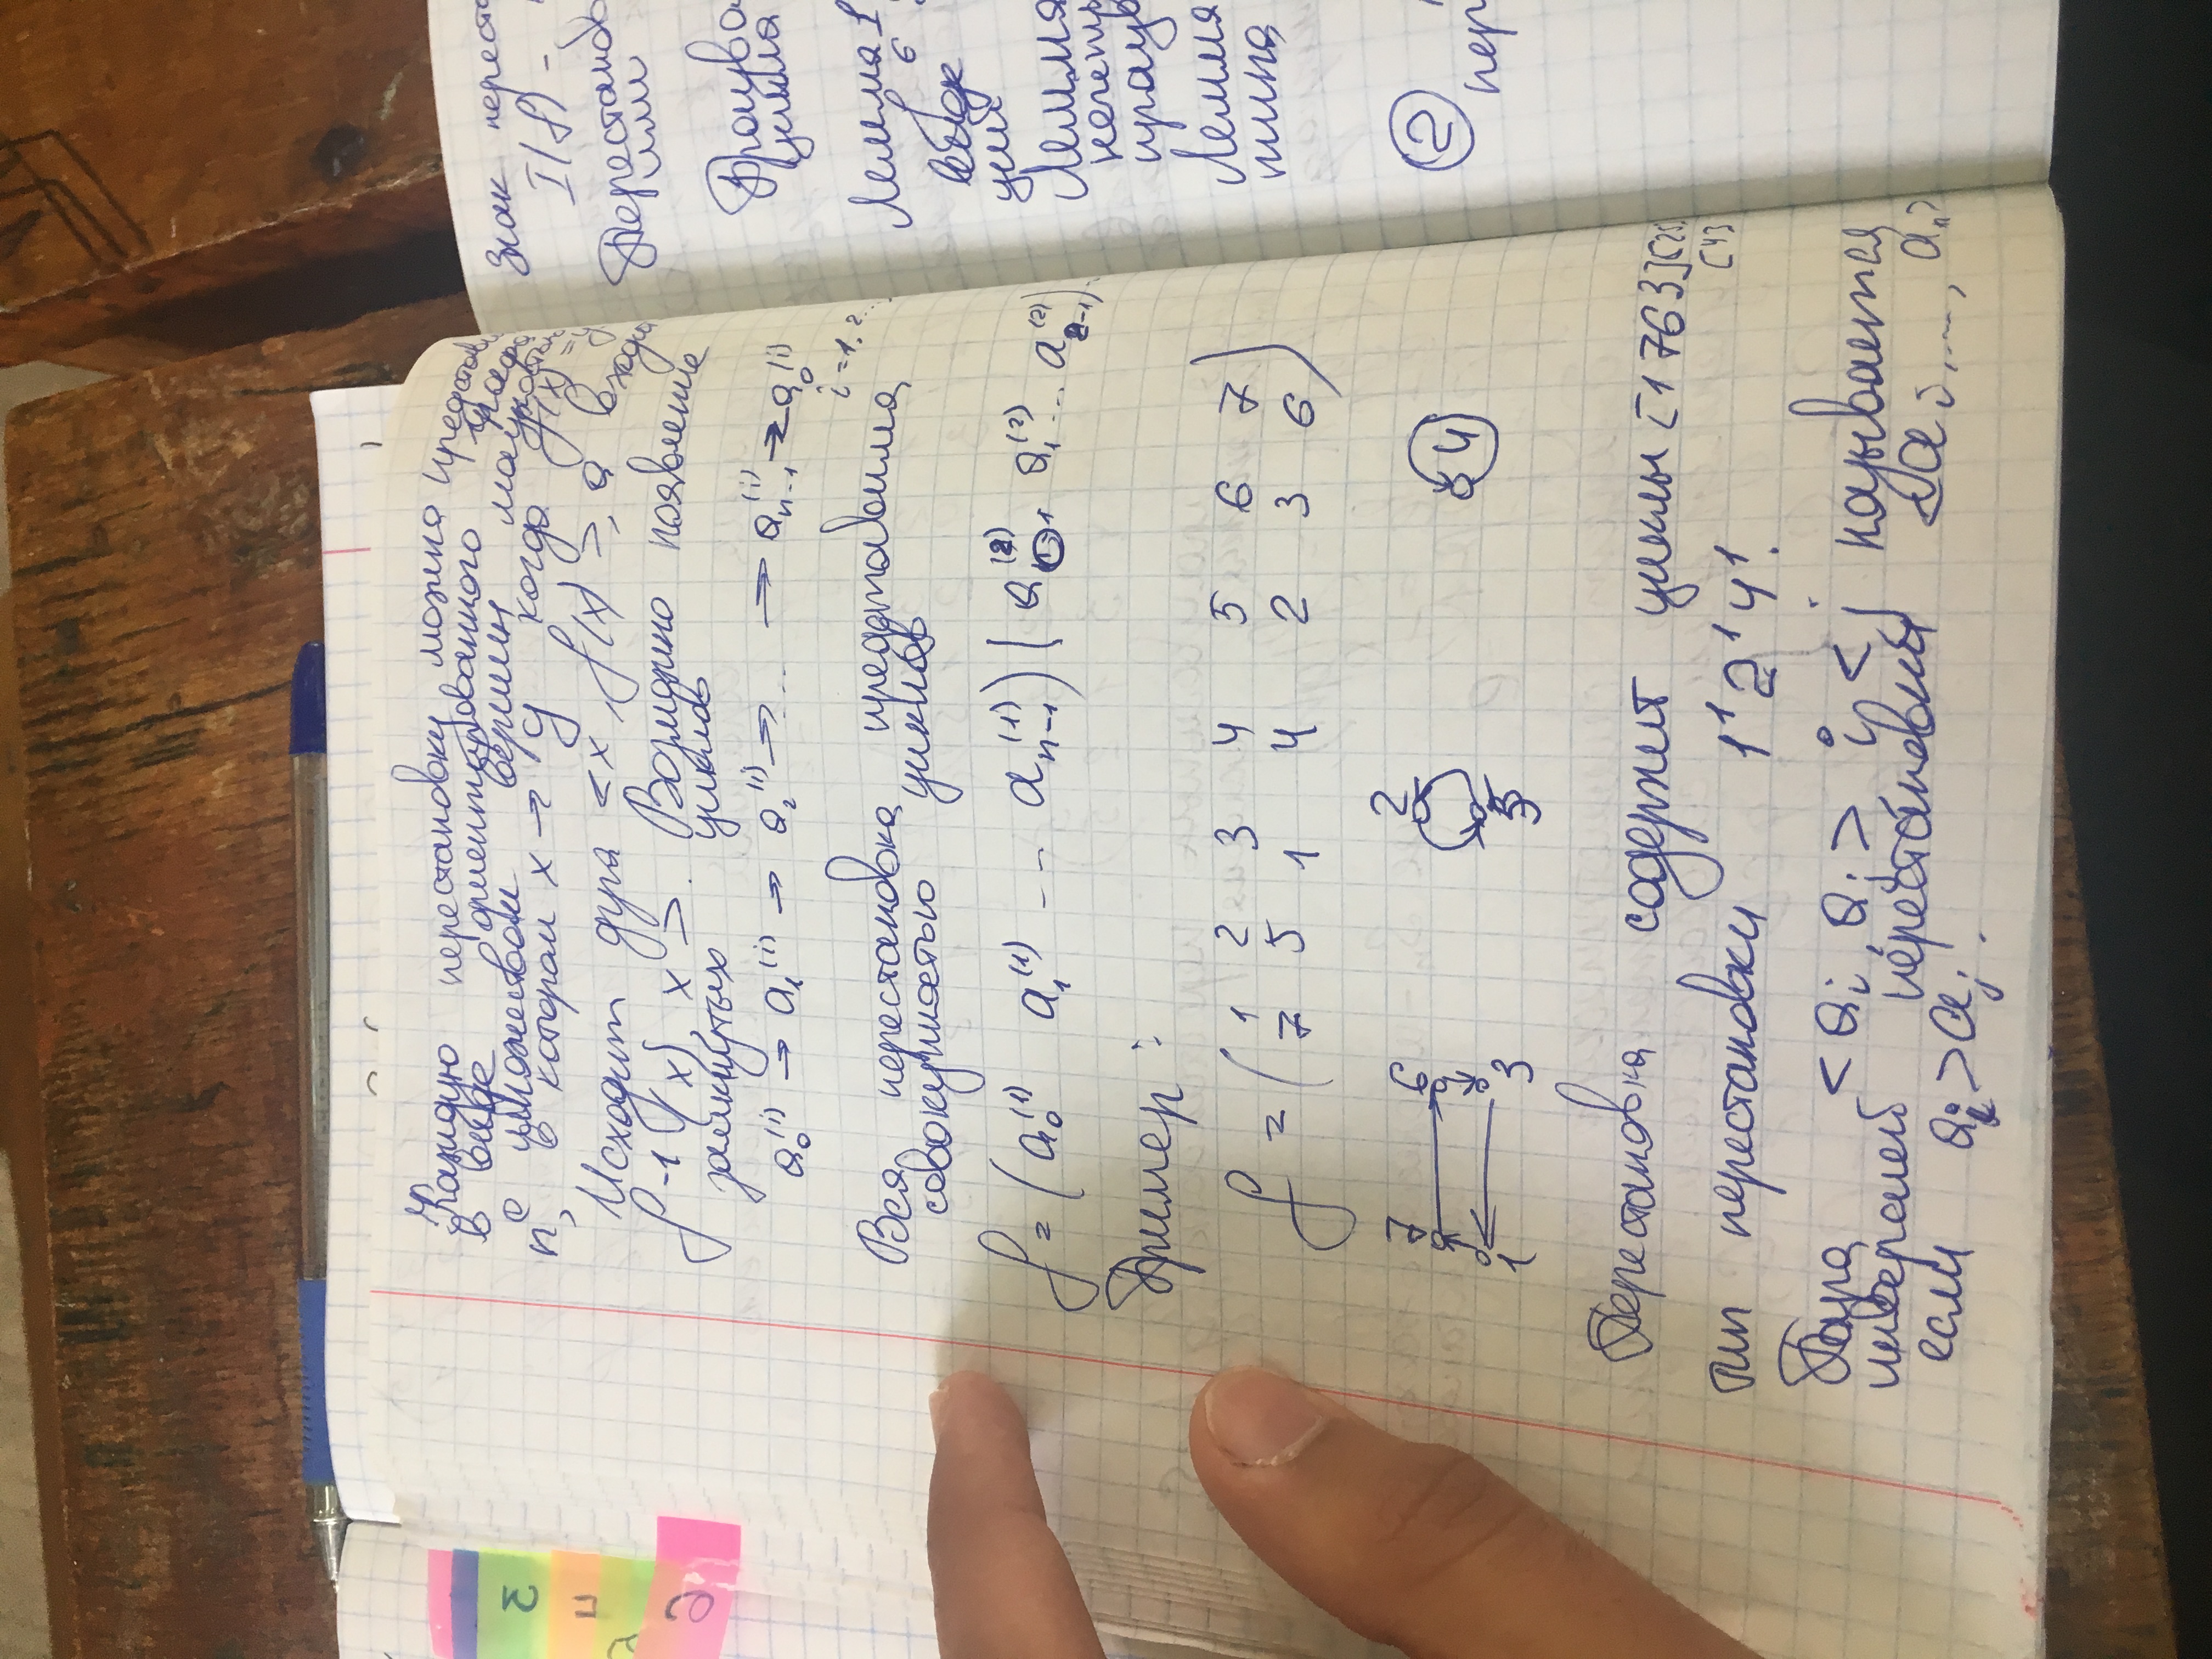 Каждую перестановку можно представи
в виде ориентированного графа
с множеством вершин мощности
n, в котором x → y когда f(x) = y
Исходит дуга <x, f(x)>, а входит
f⁻¹(x), x >. Возможно появление
замкнутых циклов
a₀⁽ⁱ⁾ → a₁⁽ⁱ⁾ → a₂⁽ⁱ⁾ → ... → aₙ₋₁⁽ⁱ⁾ → a₀⁽ⁱ⁾
i = 1, 2...
Вся перестановка представима
совокупностью циклов
f = (a₀⁽¹⁾ a₁⁽¹⁾ ... aₙ₋₁⁽¹⁾) ( a₀⁽²⁾ a₁⁽²⁾ ... a₂₋₁⁽²⁾)
Пример:
f = ( 1 2 3 4 5 6 7
7 5 1 4 2 3 6 )
7 6 2
4
1 3 5
Перестановка содержит циклы [1763][25]
[4]
тип перестановки 1¹ 2¹ 4¹.
Пара <aᵢ, aⱼ>, i < j называется
инверсией перестановки <aᵢ, ..., aₙ>
если aᵢ > aⱼ.
3
4
5
6
Знак переста
I(f) -
Перестанов
или
Произво
цикла
Лемма 1
f в
виде
ций
Лемма
нечётн
произв
Лемма
типа
②
пер